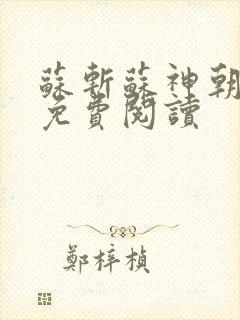 蘇斬蘇神朝
免費閱讀
鄭梓楨